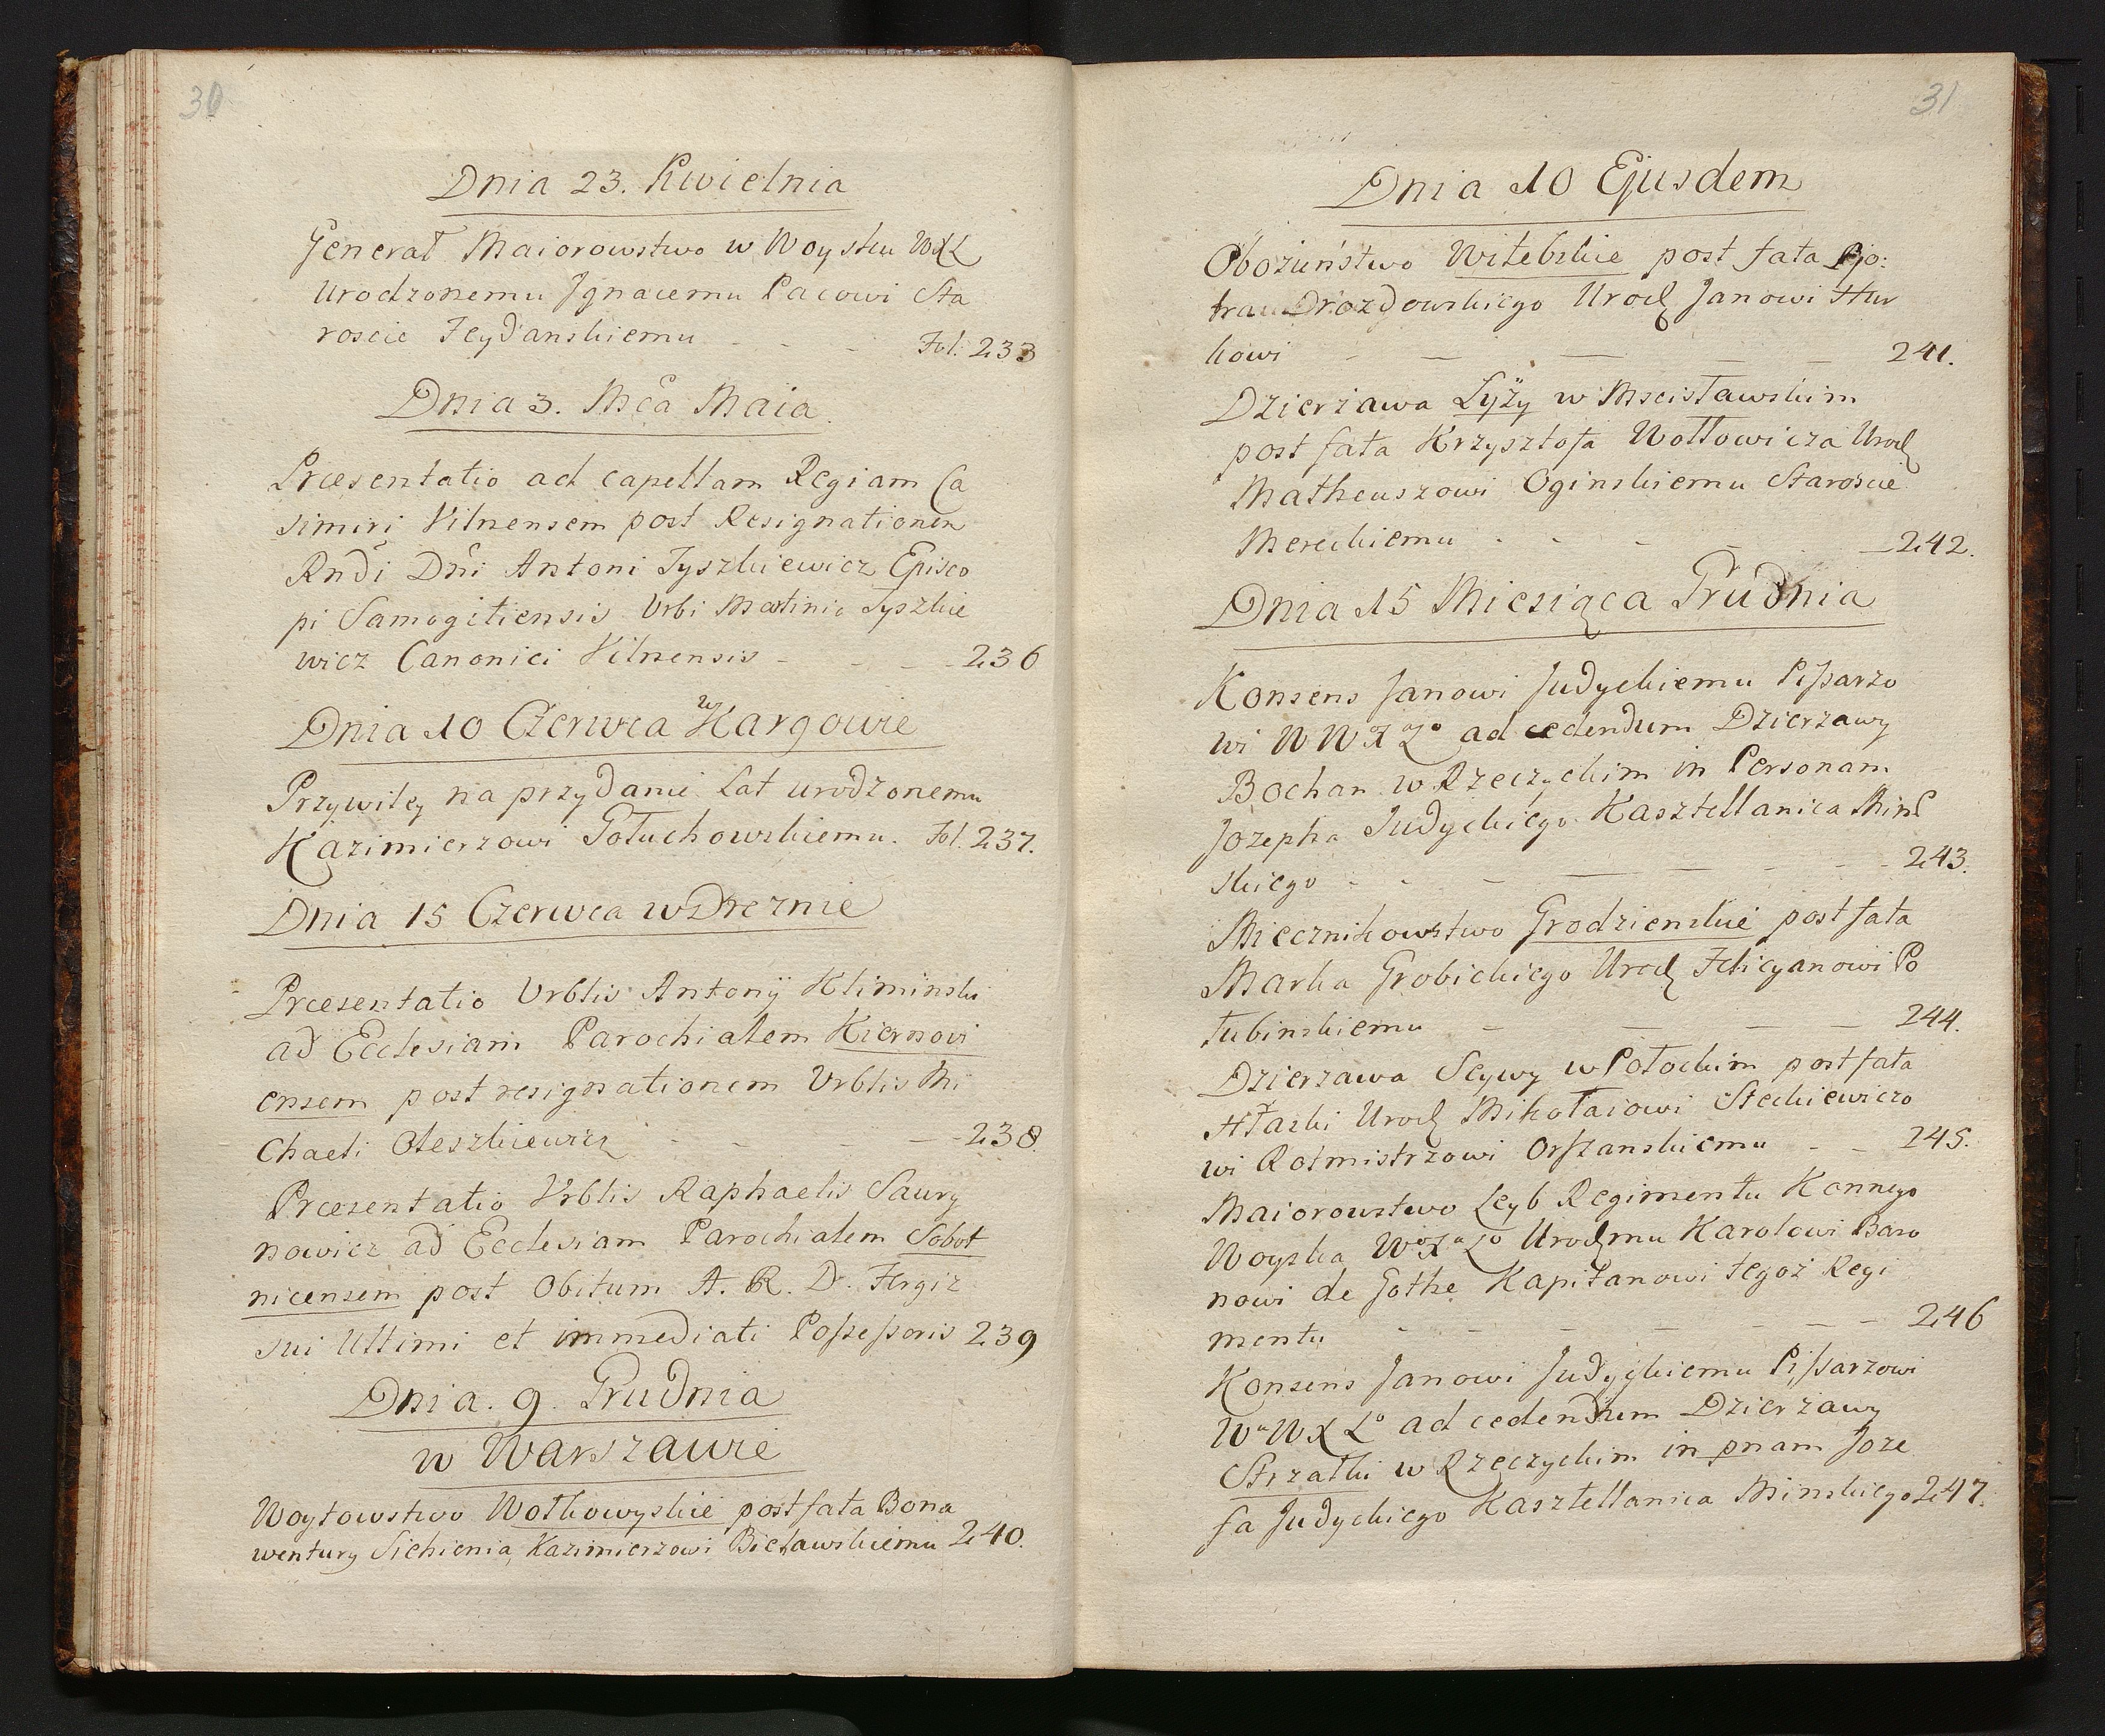 30
Dnia 23. Kwietnia
Generał Maiorowstwo w Woysku WXL
Urodzonemu Jgnacemu Pacowi Sta
roscie Feydanskiemu - - - Fol. 233
Dnia 3. Mca Maia
Præsentatio ad capellam Regiam Ca
simiri Vilnensem post Resignationen
Rndi Dni Antoni Tyszkiewicz Episco
pi Samogitiensis Urbi Matinis Tyszkie
wicz Canonici Vilnensis - - - - 236
Dnia 10 Czerwca w Kargowie
Przywiley na przydanie Lat urodzonemu
Kazimierzowi Gołuchowskiemu. Fol. 237.
Dnia 15 Czerwca w Dreznie
Præsentatio Vrblis Antonÿ Kliminski
ad Ecclesiam Parochialem Kiernowi
ensem post resignationem Vrblis Mi
chaeli Oleszkiewicz - - - - 238.
Præsentatio Vrblis Raphaelis Saury
nowicz ad Ecclesiam Parochialem Sobot
nicensem post Obitum A. R. D. Fergiz
sui Ultimi et immediati Possessoris 239
Dnia. 9. Grudnia
w Warszawie
Woytowstwo Wołkowyskie post fata Bona
wentury Sichienia, Kazimierzowi Bieławskiemu 240.
31
Dnia 10 Ejusdem
Obozieństwo Witebskie post fata Pio:
tra Drozdowskiego Urod Janowi Hur
kowi - - - - 241.
Dzierzawa Łyży w Mscisławskim
post fata Krzysztofa Wołłowicza Urod
Matheuszowi Oginskiemu Staroscie
Mereckiemu - - - - 242.
Dnia 15 Miesiąca Grudnia
Konsens Janowi Judyckiemu Pissarzo
wi W W X Lo ad cedendum Dzierzawy
Bochan w Rzeczyckim in Personam
Jozepha Judyckiego Kasztellanica Min
skiego - - - - - 243.
Miecznikowstwo Grodzienskie post fata
Marka Grobickiego Urod Felicyanowi Po
łubinskiemu - - - - 244.
Dzierzawa Seywy w Połockim post fata
Hłaski Urod Mikołaiowi Steckiewiczo
wi Rotmistrzowi Orszanskiemu - - 245.
Maiorowstwo Leyb Regimentu Konnego
Woyska Wo Xa Lo Urodzmu Karolowi Baro
nowi de Gothe Kapitanowi tegoż Regi
mentu - - - - - - 246
Konsens Janowi Judyckiemu Pissarzowi
Wu W X Lo ad cedendum Dzierżawy
Strzałki w Rzeczyckim in pnam Joze
fa Judyckiego Kasztellanica Minskiego 247.